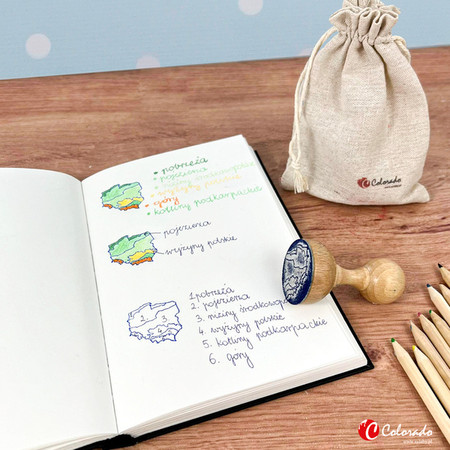 • pobrzeża
• pojezierza
• niziny środkowopolskie
• wyżyny polskie
• góry
• kotliny podkarpackie
pojezierza
wyżyny polskie
1. pobrzeża
2. pojezierza
3. niziny środkowop
4. wyżyny polskie
5. kotliny podkarpackie
6. góry
2. 3.
4.
Colorado
Colorado